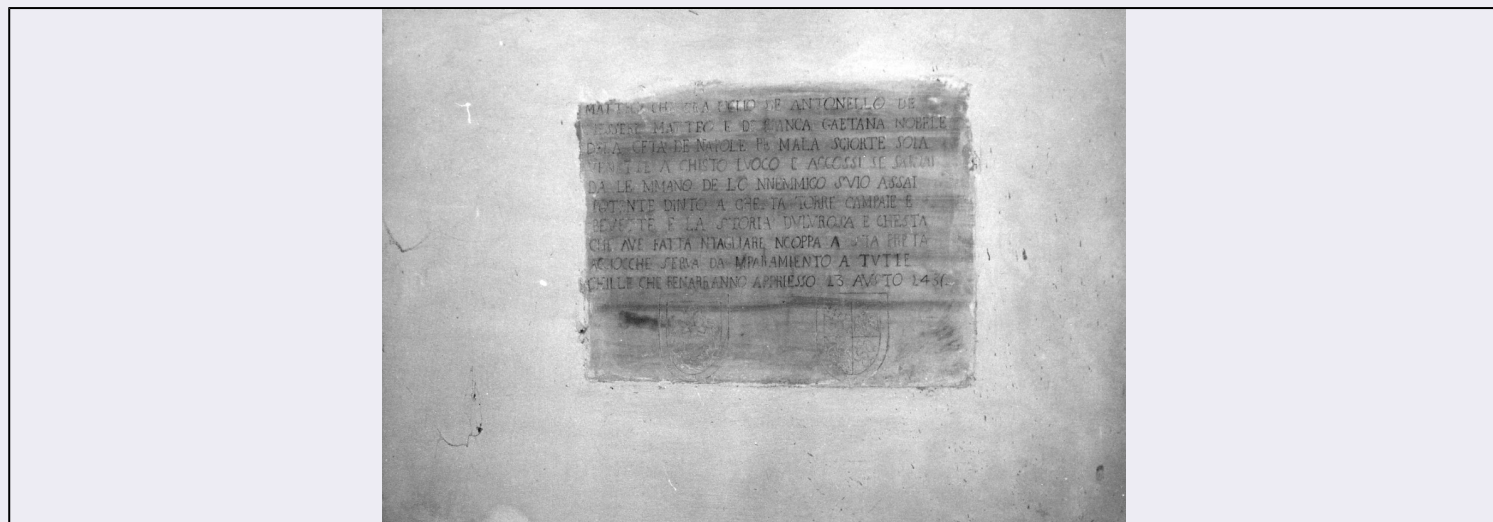 MATTEO CHE ERA FIGLIO DE ANTONELLO DE
MESSERE MATTEO E DE BIANCA GAETANA NOBELE
DELA CETA DE NAPOLE PE MALA SCIORTE SOIA
VENETTE A CHISTO LVOCO E ACCOSSI SE SARVAI
DA LE MMANO DE LO NNEMMICO SVIO ASSAI
POTENTE DINTO A CHESTA TORRE CAMPAIE E
E LA STORIA DVLVROSA E CHESTA
CHE AVE FATTA NTAGLIARE NCOPPA A STA PRETA
ACIOCCHE SERVA DA MPARAMIENTO A TVTTE
CHILLE CHE BENARRANNO APPRIESSO 13 AVSTO